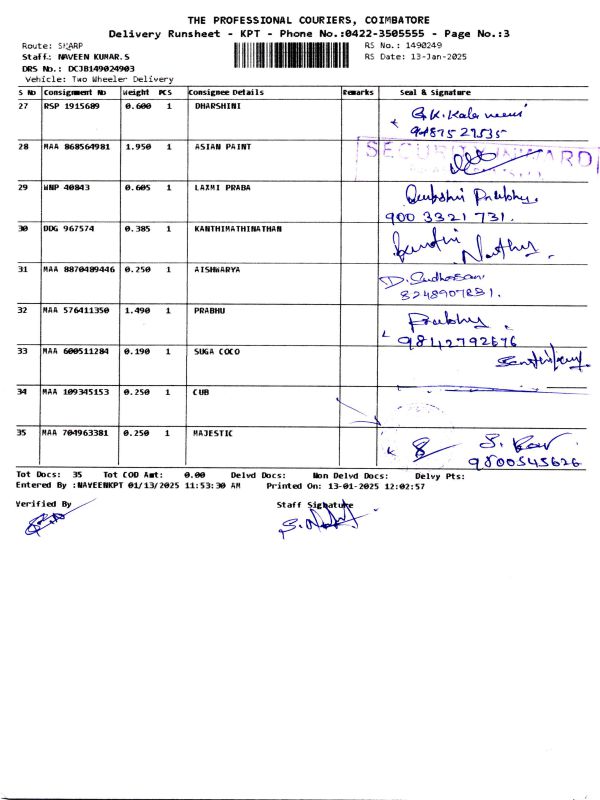 THE PROFESSIONAL COURIERS, COIMBATORE
Delivery Runsheet - KPT - Phone No.:0422-3505555 - Page No.:3
Route: SHARP RS No.: 1490249
Staff: NAVEEN KUMAR.S RS Date: 13-Jan-2025
DRS No.: DCJB149024903
Vehicle: Two Wheeler Delivery
S No Consignment No Weight PCS Consignee Details Remarks Seal & Signature
27 RSP 1915689 0.600 1 DHARSHINI
9487527535
28 MAA 868564981 1.950 1 ASIAN PAINT SECURITY INWARD
29 WNP 40843 0.605 1 LAXMI PRABA Prabhu.
900 3321 731.
30 DDG 967574 0.385 1 KANTHIMATHINATHAN
31 MAA 8870489446 0.250 1 AISHWARYA D. Sudhasan
32 MAA 576411350 1.490 1 PRABHU Prabhu.
9842792676
33 MAA 600511284 0.190 1 SUGA COCO
34 MAA 109345153 0.250 1 CUB
35 MAA 704963381 0.250 1 MAJESTIC
9800545626
Tot Docs: 35 Tot COD Amt: 0.00 Delvd Docs: Non Delvd Docs: Delvy Pts:
Entered By :NAVEENKPT 01/13/2025 11:53:30 AM Printed On: 13-01-2025 12:02:57
Verified By Staff Signature